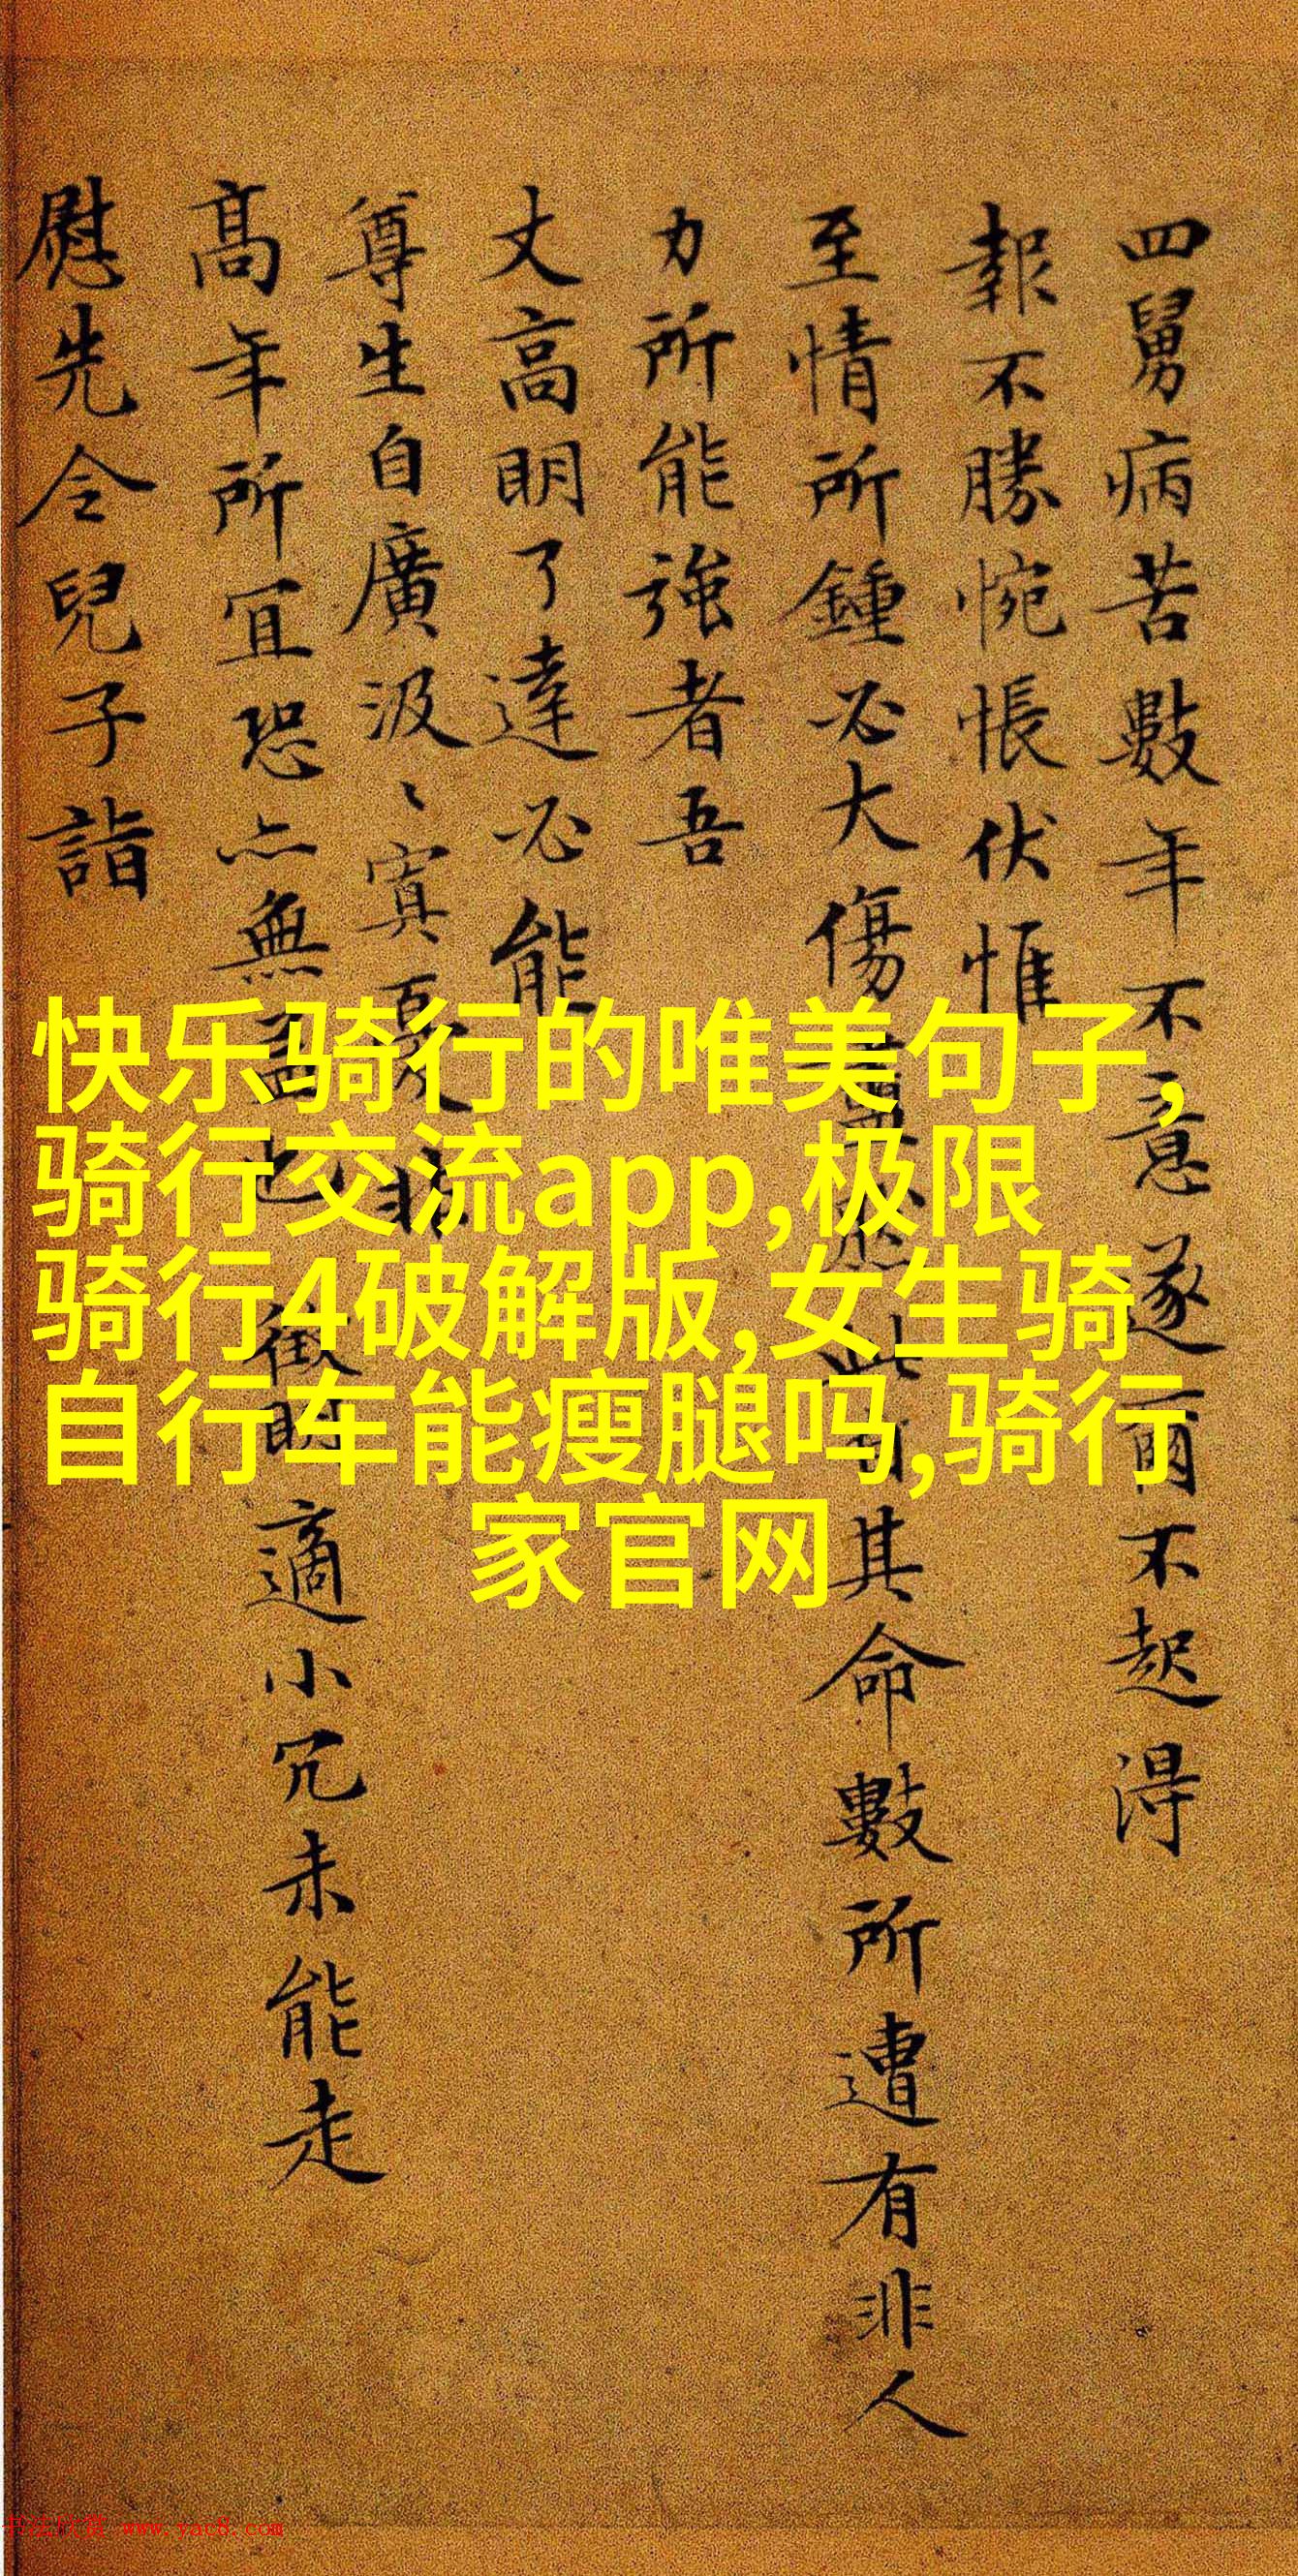 四舅病苦數年不意遂爾不起得
報不勝惋悵伏惟
至情所鍾必大傷
其命數所遭有非人
力所能強者吾
丈高明了達必能
尊生自廣汲〻寘
高年所宜恐亦無
適小冗未能走
慰先令兒子詣
快乐骑行的唯美句子,
骑行交流app,极限
骑行4破解版,女生骑
自行车能瘦腿吗,骑行
家官网
书法欣赏 www.yac8.com